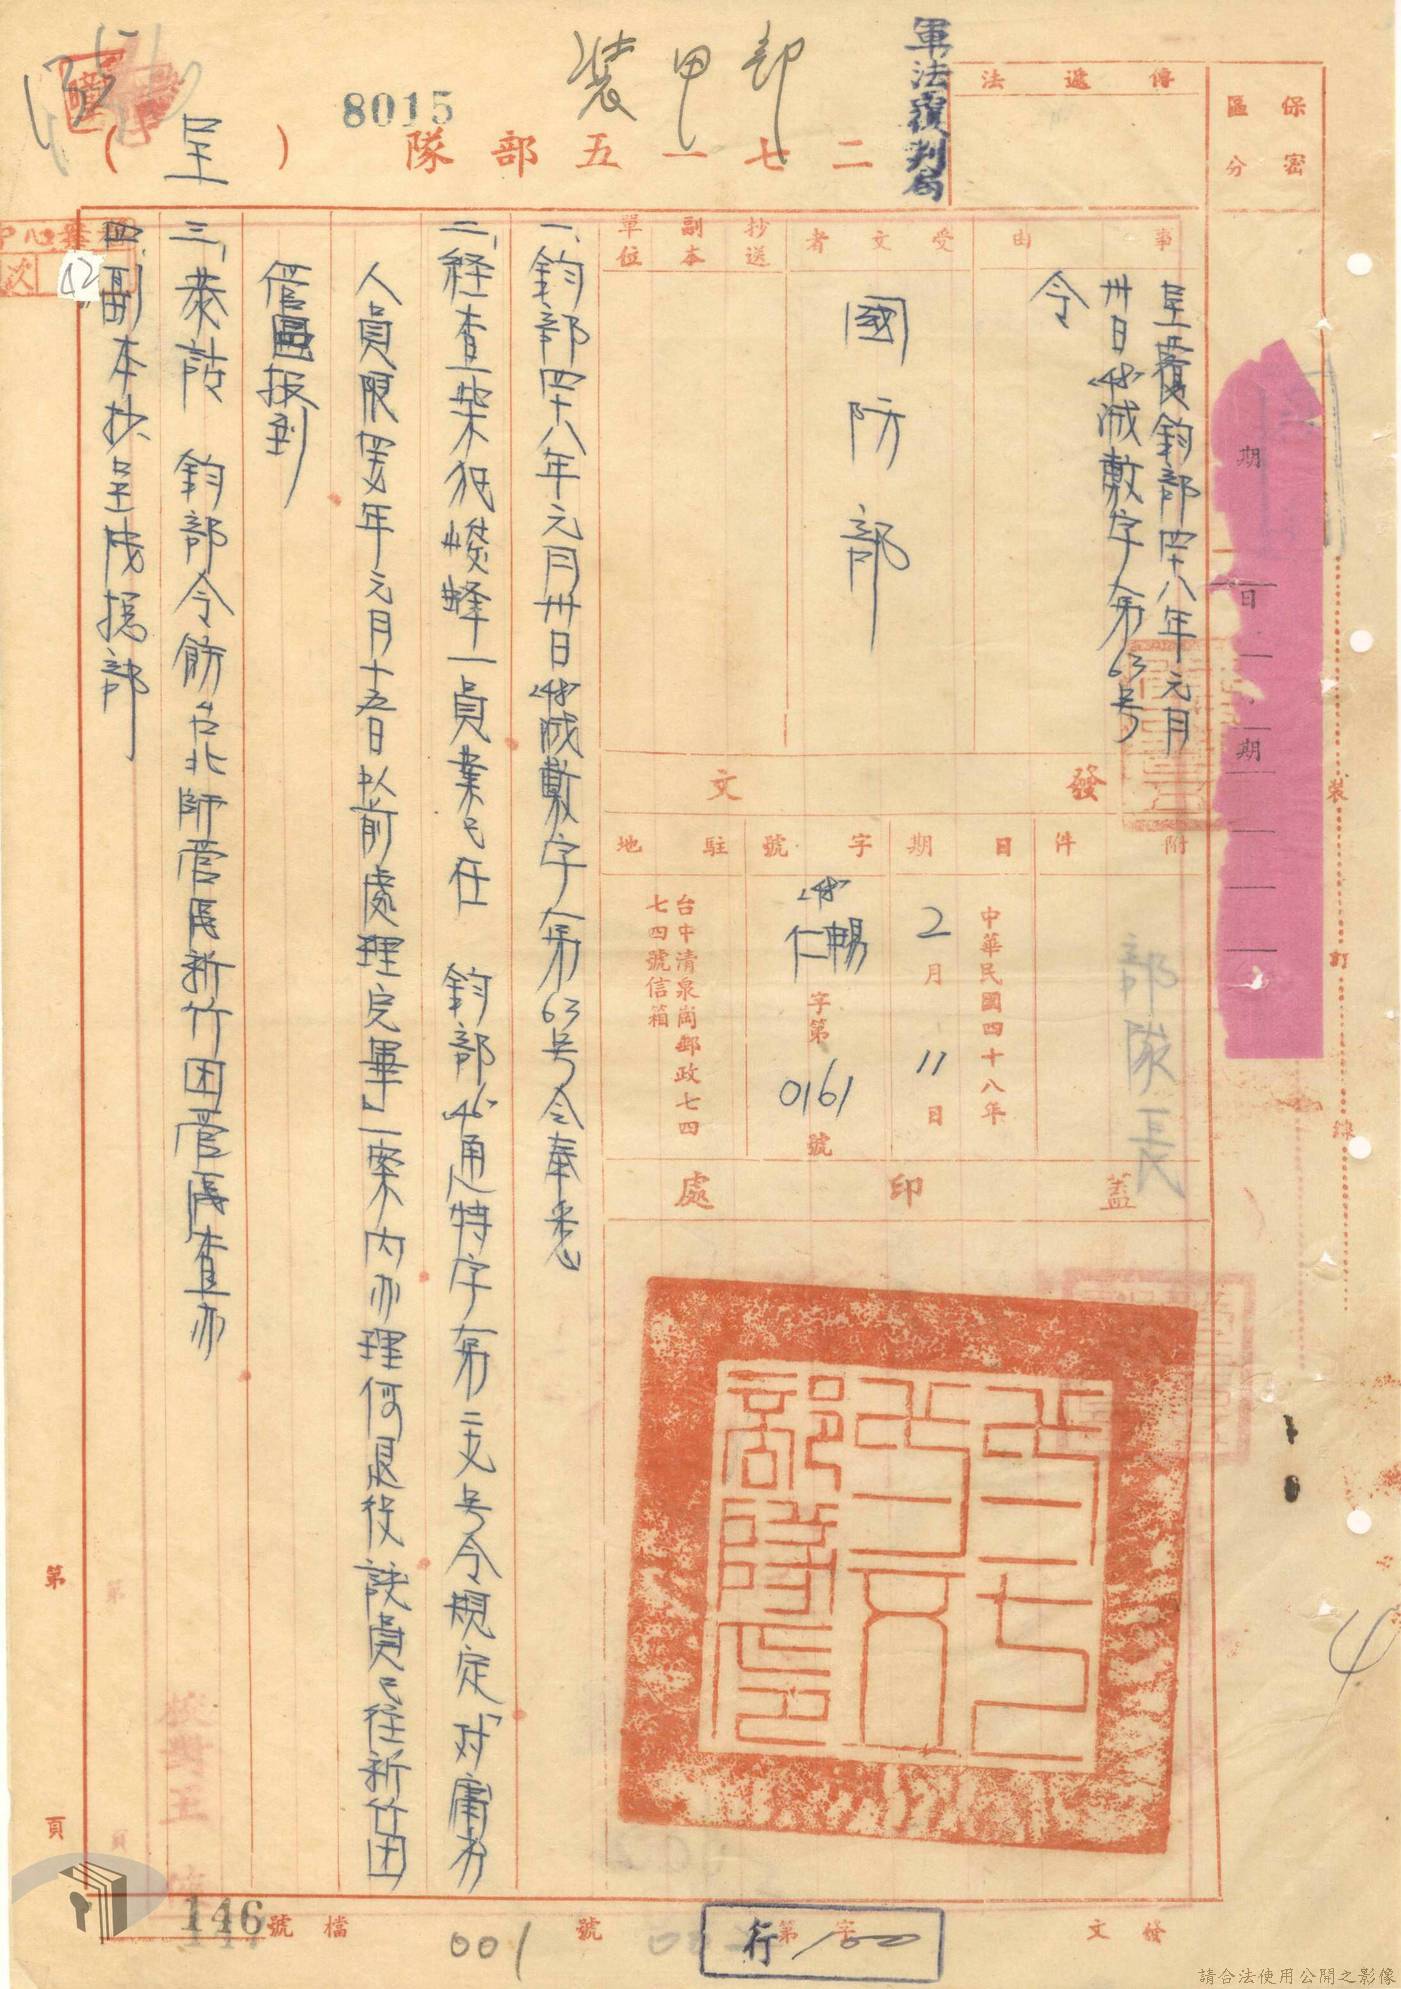 軍法覆判局
裝甲部
8015
二七一五部隊
（呈）
保密
區分
傳遞法
事由
呈覆鈞部四十八年元月
卅日(48)減敷字第63号
令
受文者
國防部
抄送
副本
單位
發文
附件
日期
中華民國四十八年
2月11日
字號
(48)
仁暢字第0161號
駐地
台中清泉崗郵政七四
七四號信箱
蓋印處
部隊長
二七一五部隊印
一、鈞部四十八年元月卅日(48)減敷字第63号令奉悉
二、経查柴犯
峰一員業已在 鈞部(46)通透特字第二文号令規定「对
人員限
年元月十五日以前處理完畢」一案内办理何退役該員已往新竹团
管區报到
三、恭請 鈞部令飭台北師管區新竹团管區查办
四、副本抄呈陸總部
期
日
期
裝
訂
線
第
頁
4
42
次
校對王
發文
字第
號
檔號
行
001
146
請合法使用公開之影像